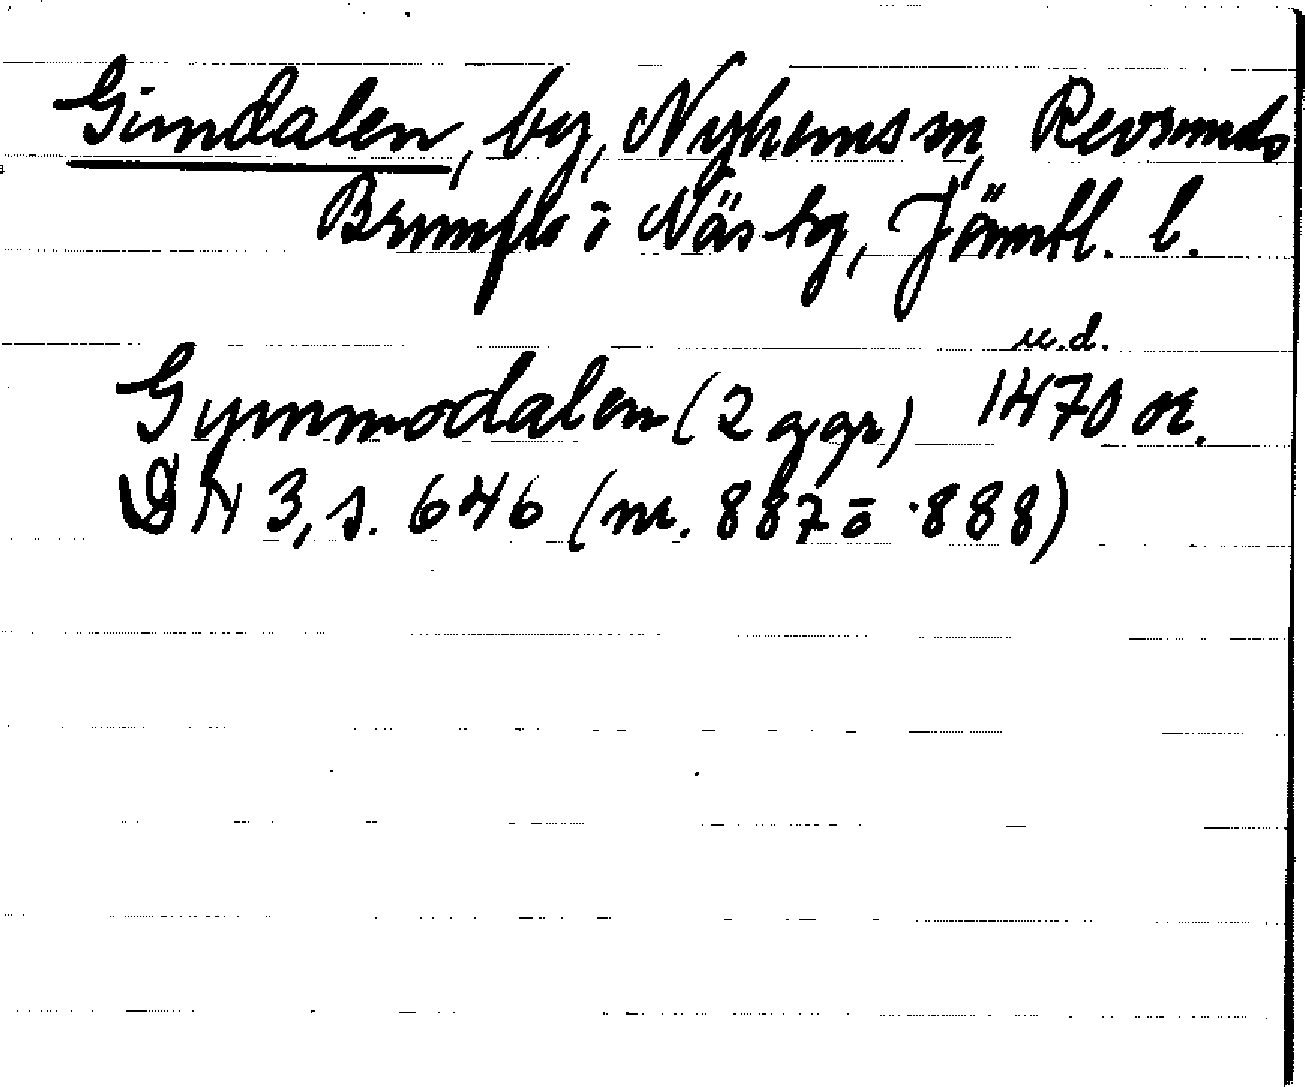 Gimdalen, by, Nyhems sn, Revsunds
Brunflo o Näs tg, Jämtl. l.
u.d.
Gymmodalen (2 ggr) 1470 or.
DN 3, s. 646 (nr. 887 o 888)